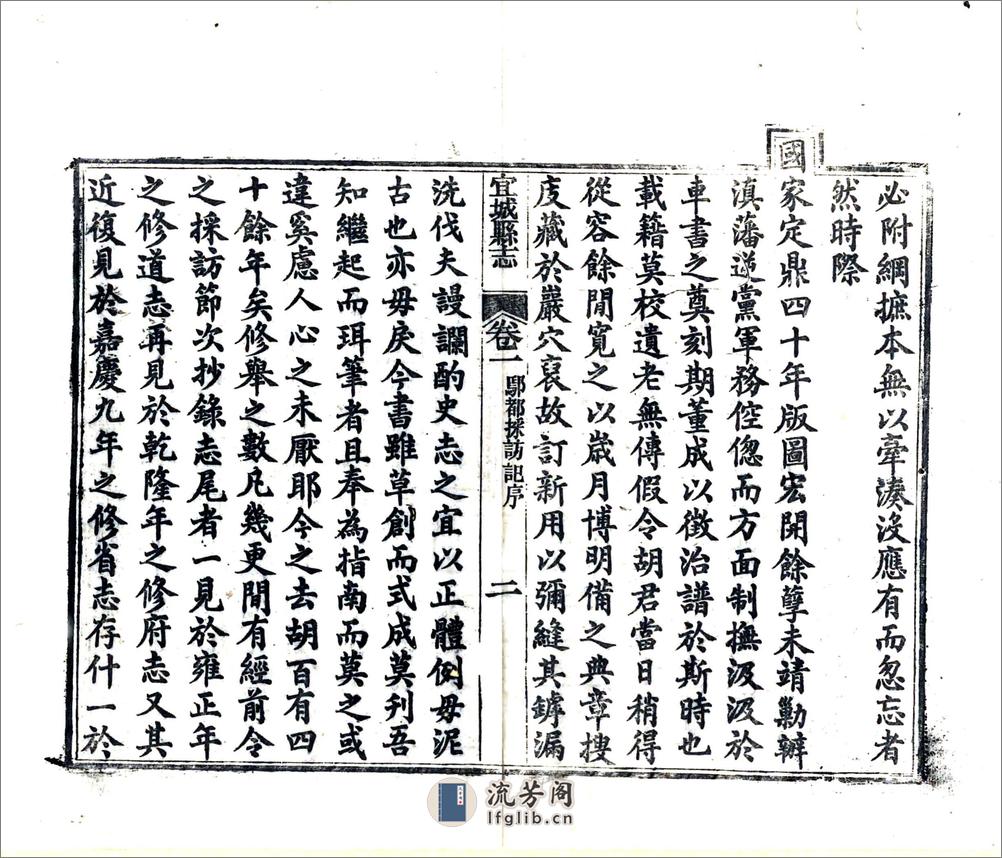 必附綱摭本無以牽湊沒應有而忽忘者
然時際
國家定鼎四十年版圖宏開餘孽未靖勦辦
滇藩逆黨軍務倥傯而方面制撫汲汲於
車書之奠刻期董成以徵治譜於斯時也
載籍莫校遺老無傳假令胡君當日稍得
從容餘閒寬之以歲月博明備之典章搜
庋藏於巖穴裒故訂新用以彌縫其罅漏
宜城縣志 卷一 鄢都採訪記序 二
洗伐夫謾讕酌史志之宜以正體例毋泥
古也亦毋戾今書雖草創而式成莫刊吾
知繼起而珥筆者且奉為指南而莫之或
違奚慮人心之未厭耶今之去胡百有四
十餘年矣修舉之數凡幾更間有經前令
之採訪節次抄錄志尾者一見於雍正年
之修道志再見於乾隆年之修府志又其
近復見於嘉慶九年之修省志存什一於
流芳阁
lfglib.cn